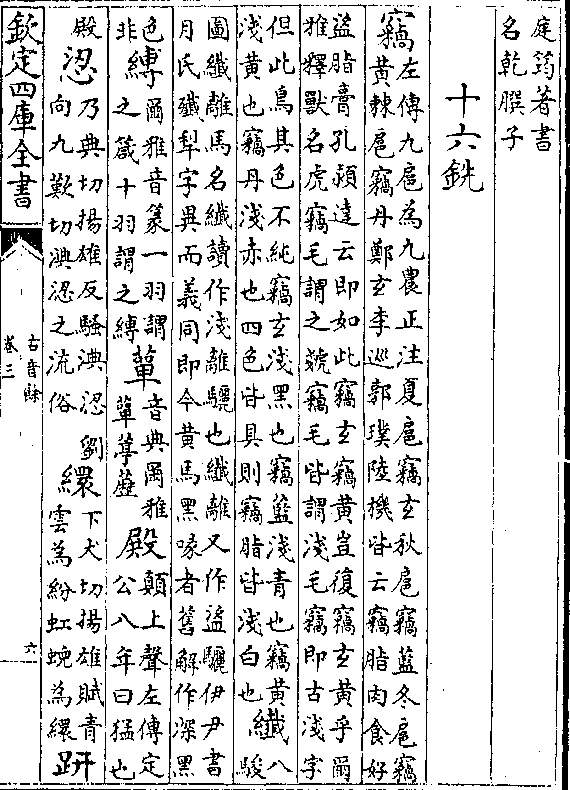 庭筠著書
名乾𦠆子
十六銑
竊左傳九扈為九農正注夏扈竊玄秋扈竊藍冬扈竊
黃棘扈竊丹鄭玄李巡郭璞陸機皆云竊脂肉食好
盜脂膏孔穎達云即如此竊玄竊黃豈復竊玄黃乎爾
雅釋獸名虎竊毛謂之虦竊毛皆謂淺毛竊即古淺字
但此鳥其色不純竊玄淺黑也竊藍淺青也竊黃
淺黃也竊丹淺赤也四色皆具則竊脂皆淺白也
纎八駿
圖纎離馬名纎讀作淺離驪也纎離又作盜驪伊尹書
月氏殲犁字異而義同即今黃馬黑喙者舊解作深黑
色非
縳爾雅音篆一羽謂之箴十羽謂之縳
蕇音典爾雅蕇葶藶
殿顛上聲左傳定公八年曰猛也殿
涊乃典切揚雄反騷淟涊劉向九歎切淟涊之流俗
繯下犬切揚雄賦青雲為紛虹蜺為繯
趼
欽定四庫全書
古音餘
卷三
六